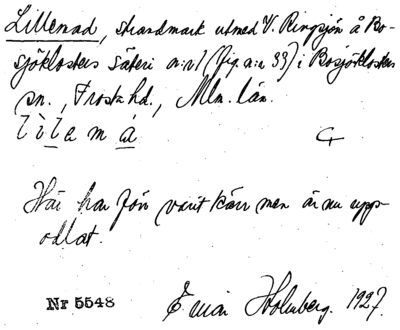 Lillemad, strandmark utmed V. Ringsjön å Bo-
sjöklosters säteri a:r1 (fig. a:a 33) i Bosjöklosters
sn., Frosta hd., Mlm. län.
lilamá
Här har förr varit kärr men är nu upp-
odlat.
Nr 5548
Holmberg. 1927.